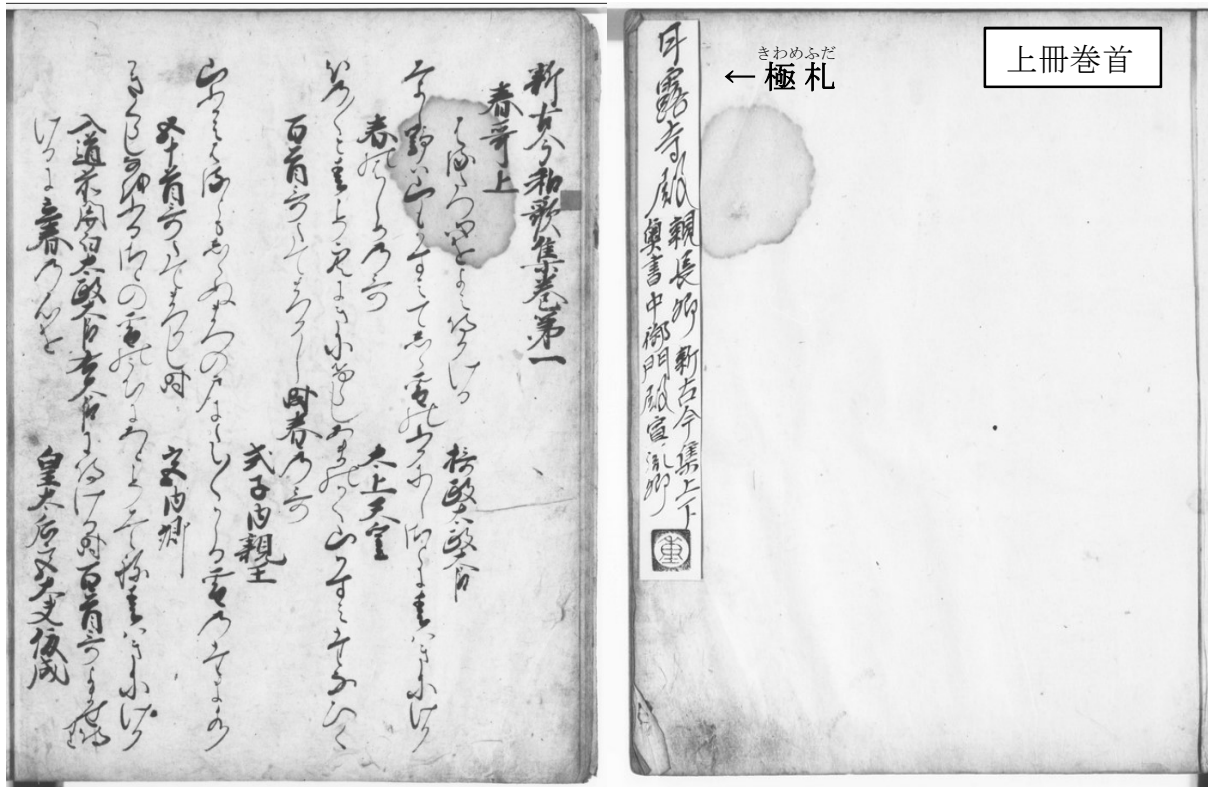 上冊巻首
きわめふだ
←極札
甘露寺殿親長卿 新古今集上下
奥書中御門殿宣胤卿
重
新古今和歌集巻第一
春哥上
はるたつ心をよみ侍ける
摂政太政大臣
みよし野ハ山もかすみてしら雪のふりにし里に春ハきにけり
春のはしめの哥 太上天皇
ほの〳〵と春こそ空にきにけらしあまのかく山かすみたなひく
百首哥たてまつりし時春の哥
式子内親王
山ふかみ春ともしらぬまつの戸にたえ〳〵かゝる雪の玉水
五十首哥たてまつりし時 宮内卿
かきくらし猶ふる里の雪のうちにあとこそみえね春ハきにけり
入道前関白太政大臣右大臣に侍ける時百首哥よませ侍
けるに立春の心を
皇太后宮大夫俊成